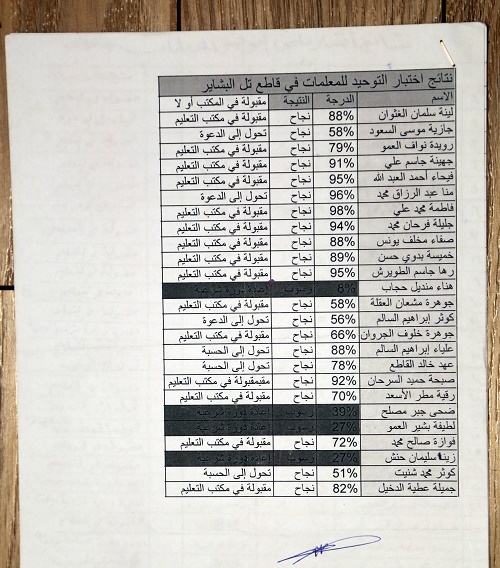 نتائج اختبار التوحيد للمعلمات في قاطع تل البشاير
الاسم الدرجة النتيجة مقبولة في المكتب أو لا
لينة سلمان الغثوان 88% نجاح مقبولة في مكتب التعليم
جازية موسى السعود 58% نجاح تحول إلى الدعوة
رويدة نواف العمو 79% نجاح مقبولة في مكتب التعليم
جهينة جاسم علي 91% نجاح مقبولة في مكتب التعليم
فيحاء أحمد العبد الله 95% نجاح مقبولة في مكتب التعليم
منا عبد الرزاق محمد 96% نجاح تحول إلى الدعوة
فاطمة محمد علي 98% نجاح مقبولة في مكتب التعليم
جليلة فرحان محمد 94% نجاح مقبولة في مكتب التعليم
صفاء مخلف يونس 88% نجاح مقبولة في مكتب التعليم
خميسة بدوي حسن 89% نجاح مقبولة في مكتب التعليم
رها جاسم الطويرش 95% نجاح مقبولة في مكتب التعليم
هناء منديل حجاب 8% رسوب إعادة دورة شرعية
جوهرة مشعان العقلة 58% نجاح مقبولة في مكتب التعليم
كوثر إبراهيم السالم 56% نجاح تحول إلى الدعوة
جوهرة خلوف الجروان 66% نجاح مقبولة في مكتب التعليم
علياء إبراهيم السالم 88% نجاح تحول إلى الحسبة
عهد خالد القاطع 78% نجاح تحول إلى الحسبة
صبحة حميد السرحان 92% نجاح مقبمقبولة في مكتب التعليم
رقية مطر الأسعد 70% نجاح مقبولة في مكتب التعليم
ضحى جبر مصلح 39% رسوب إعادة دورة شرعية
لطيفة بشير العمو 27% رسوب إعادة دورة شرعية
فوازة صالح محمد 72% نجاح مقبولة في مكتب التعليم
زينا سليمان حنش 27% رسوب إعادة دورة شرعية
كوثر محمد شنيت 51% نجاح تحول إلى الحسبة
جميلة عطية الدخيل 82% نجاح مقبولة في مكتب التعليم